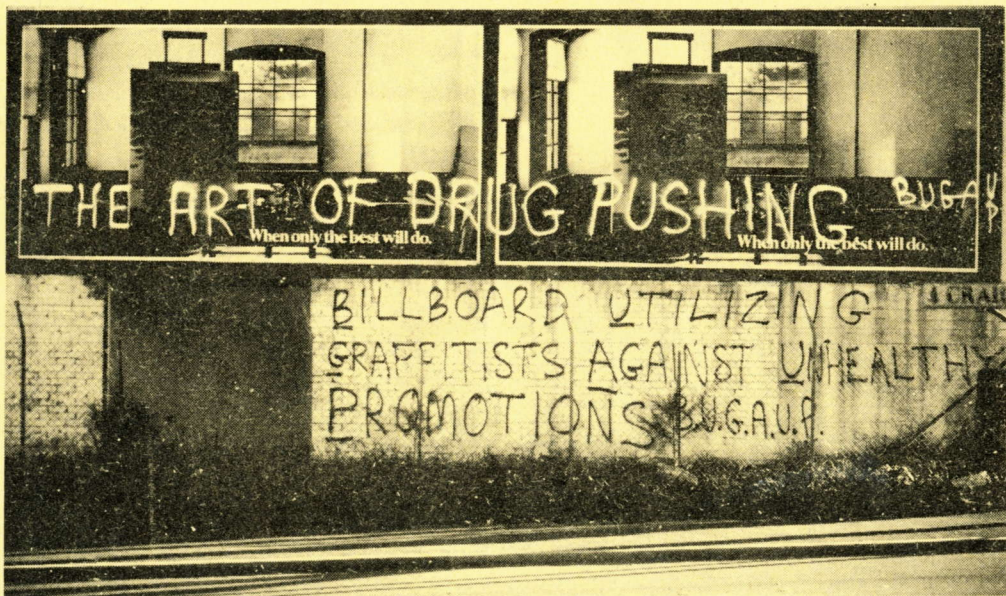 THE ART OF DRUG PUSHING BUGAUP
When only the best will do.
When only the best will do.
BILLBOARD UTILIZING
GRAFFITISTS AGAINST UNHEALTHY
PROMOTIONS B.U.G.A.U.P.